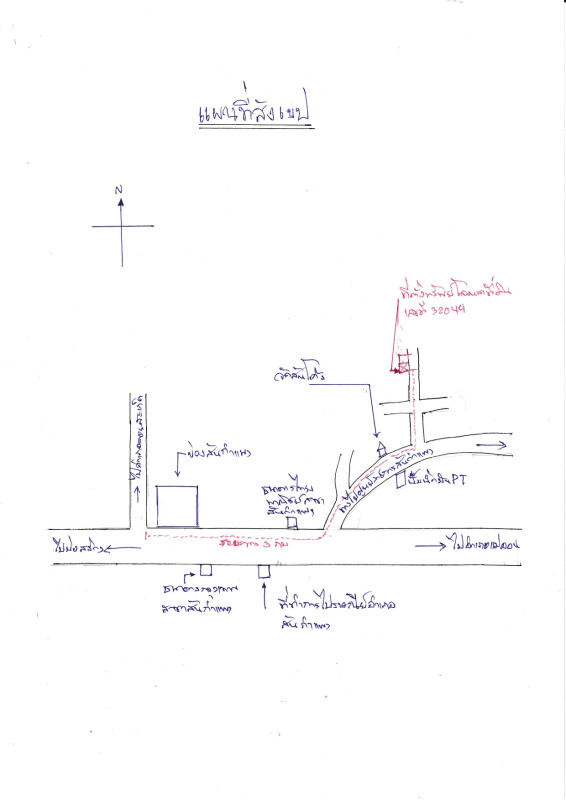 แผนที่สังเขป
N
ที่ตั้งทรัพย์โฉนดที่ดิน
เลขที่ 32049
วัดสันโค้ง
ไปอำเภอดอยสะเก็ด
บ่อสันกำแพง
ธนาคารไทย
พาณิชย์สาขา
สันกำแพง
ปั๊มน้ำมันPT
ไปบ่อสร้าง
ระยะทาง 3 กม
ไปอำเภอแม่ออน
ธนาคารกรุงเทพ
สาขาสันกำแพง
ที่ทำการไปรษณีย์อำเภอ
สันกำแพง